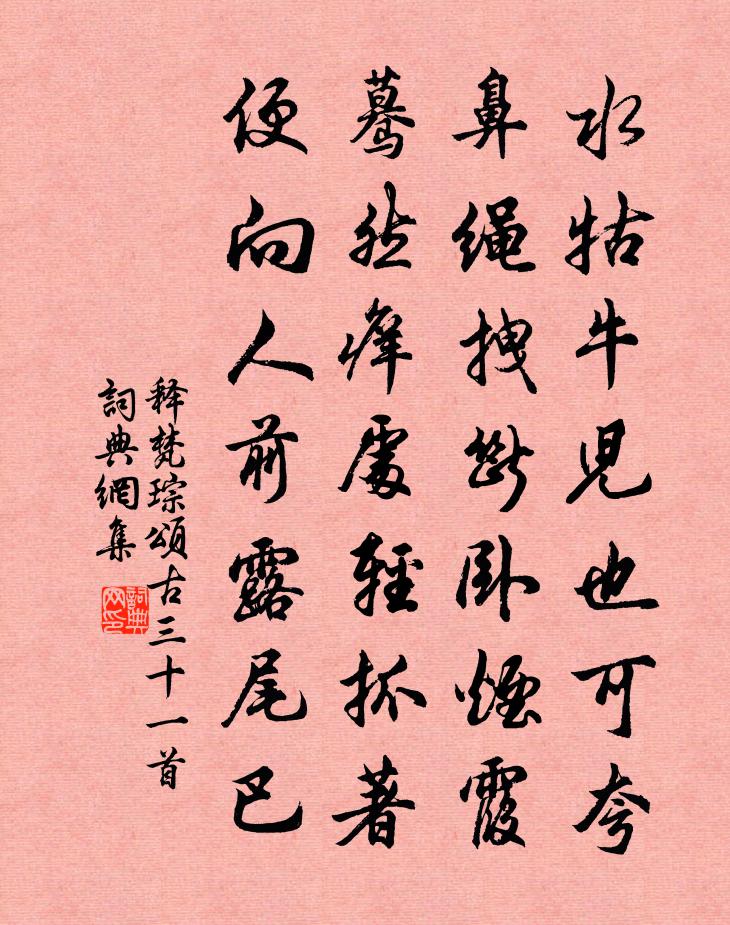 水牯牛児也可夸
鼻繩拽斷卧煙霞
驀然癢處輕抓著
便向人前露尾巴
释梵琮頌古三十一首
詞典網集
詞典网印